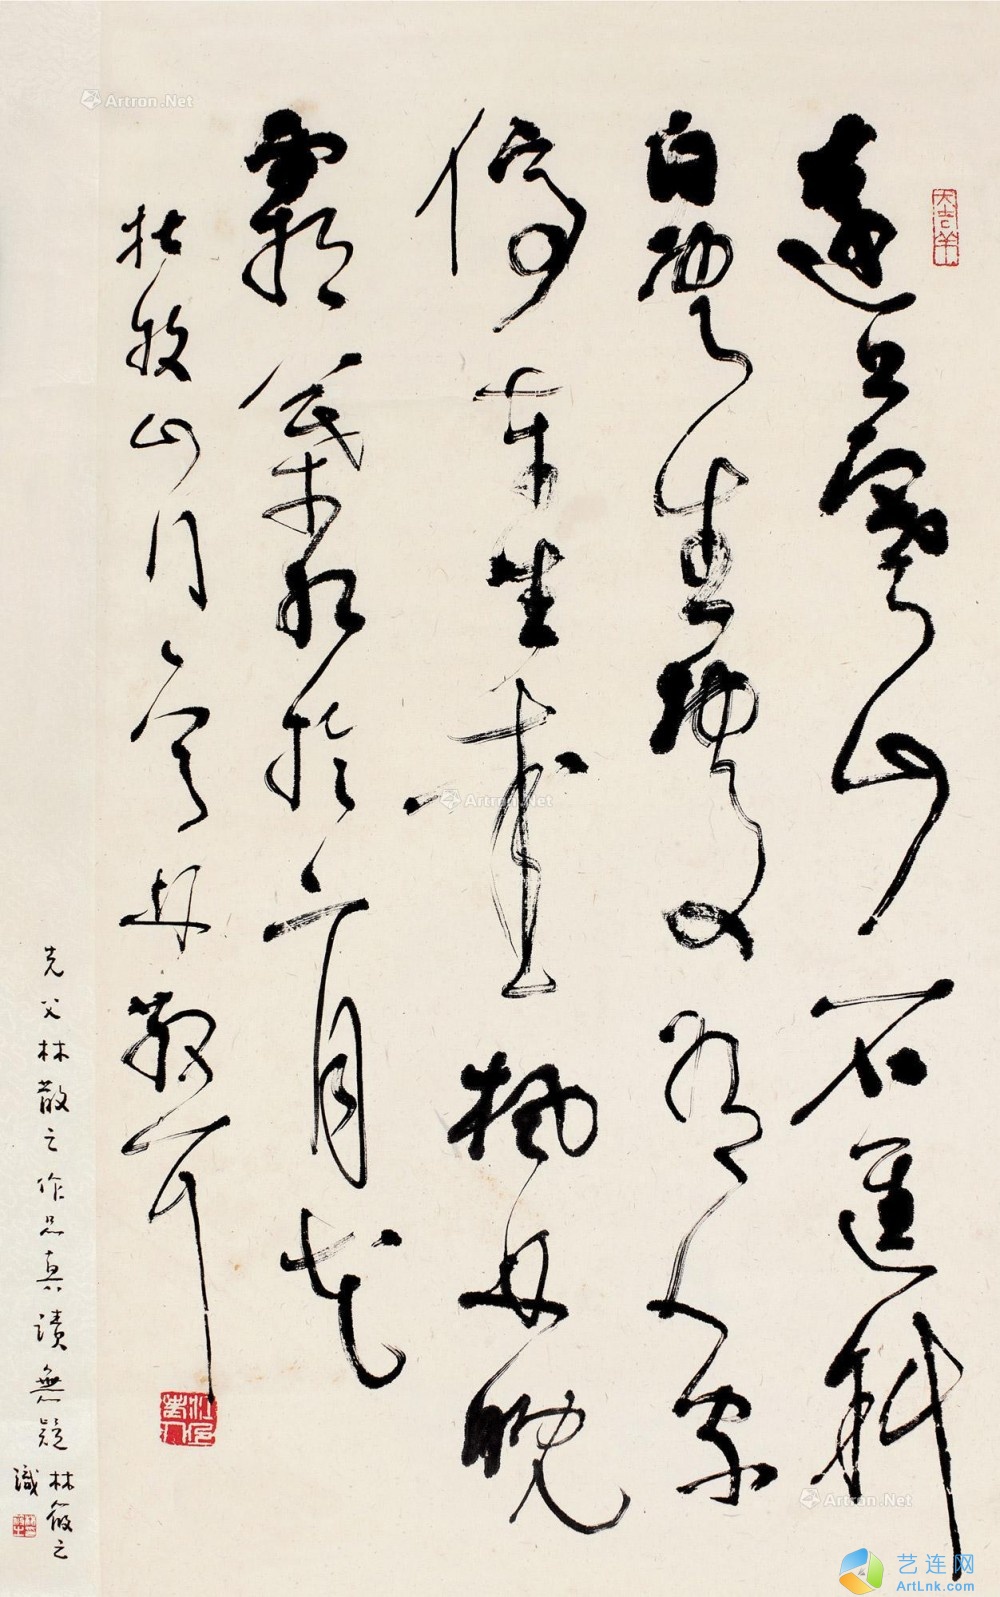 遠上寒山石逕斜
白雲生處有人家
停車坐愛楓林晚
霜葉紅於二月花
杜牧山行 林散耳
先父林散之作品真蹟無疑 林筱之
識
Artron.Net
Artron.Net
Artron.Net
艺连网
ArtLnk.com